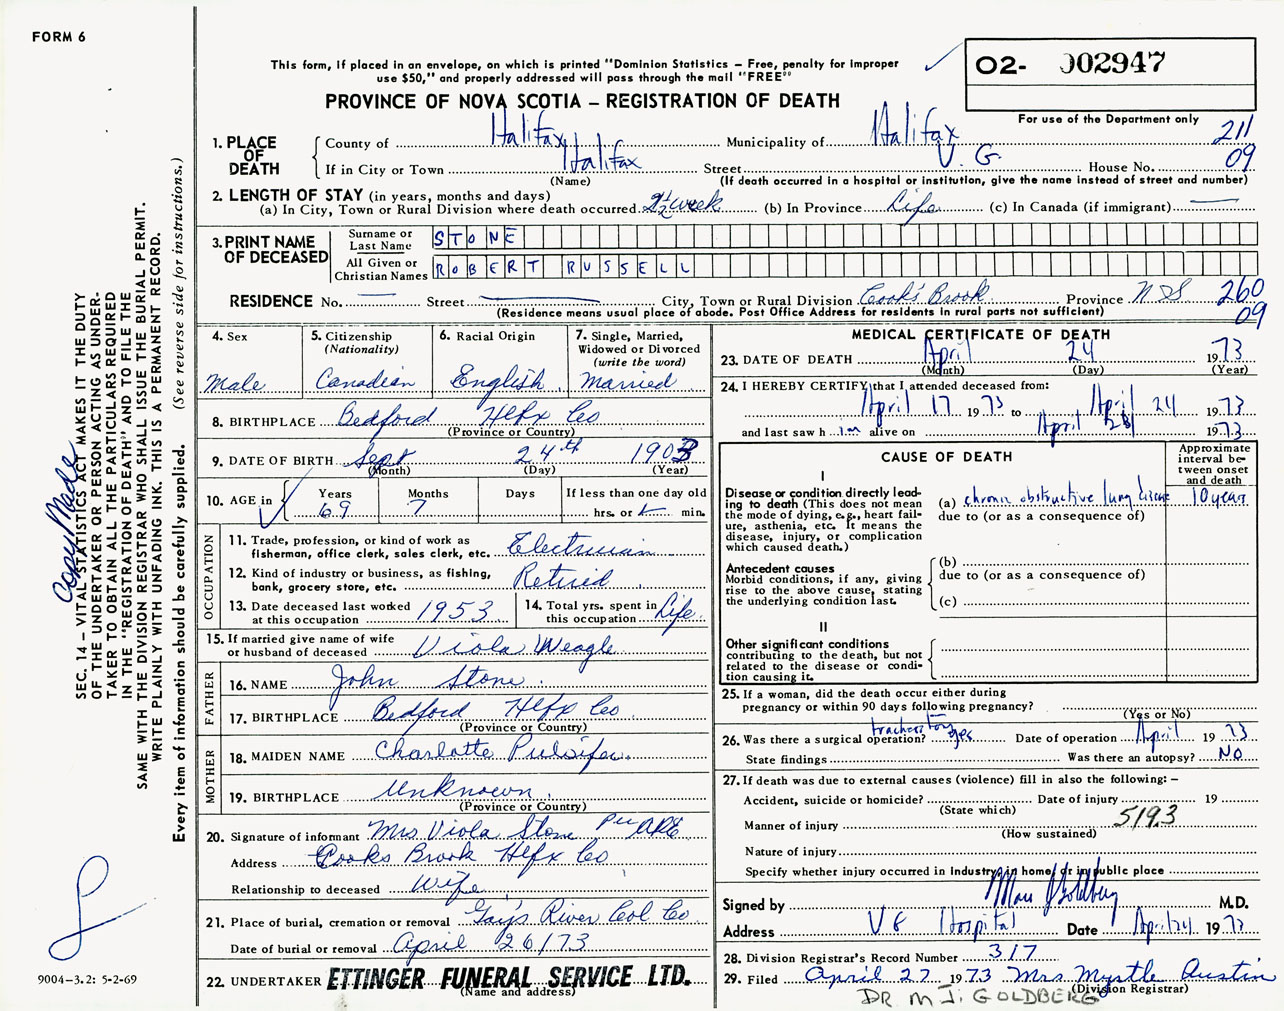 FORM 6
This form, if placed in an envelope, on which is printed "Dominion Statistics – Free, penalty for improper
use $50," and properly addressed will pass through the mail "FREE"
O2- 002947
For use of the Department only
PROVINCE OF NOVA SCOTIA – REGISTRATION OF DEATH
1. PLACE OF DEATH County of Halifax Municipality of Halifax 211
If in City or Town Halifax Street V. G. House No. 09
(Name) (If death occurred in a hospital or institution, give the name instead of street and number)
2. LENGTH OF STAY (in years, months and days)
(a) In City, Town or Rural Division where death occurred week (b) In Province Life (c) In Canada (if immigrant) —
3. PRINT NAME OF DECEASED Surname or Last Name STONE
All Given or Christian Names ROBERT RUSSELL
RESIDENCE No. — Street — City, Town or Rural Division Cook's Brook Province N S 260
(Residence means usual place of abode. Post Office Address for residents in rural parts not sufficient) 09
4. Sex Male
5. Citizenship (Nationality) Canadian
6. Racial Origin English
7. Single, Married, Widowed or Divorced (write the word) Married
8. BIRTHPLACE Bedford Hlfx Co
(Province or Country)
9. DATE OF BIRTH Sept 24th 1903
(Month) (Day) (Year)
10. AGE in Years 69 Months 7 Days If less than one day old hrs. or min.
OCCUPATION
11. Trade, profession, or kind of work as fisherman, office clerk, sales clerk, etc. Electrician
12. Kind of industry or business, as fishing, bank, grocery store, etc. Retired
13. Date deceased last worked at this occupation 1953
14. Total yrs. spent in this occupation Life
15. If married give name of wife or husband of deceased Viola Weagle
FATHER
16. NAME John Stone
17. BIRTHPLACE Bedford Hlfx Co
(Province or Country)
MOTHER
18. MAIDEN NAME Charlotte Pulsifer
19. BIRTHPLACE Unknown
(Province or Country)
20. Signature of informant Mrs Viola Stone Per
Address Cooks Brook Hlfx Co
Relationship to deceased Wife
21. Place of burial, cremation or removal Gay's River Col Co
Date of burial or removal April 26/73
22. UNDERTAKER ETTINGER FUNERAL SERVICE LTD.
(Name and address)
MEDICAL CERTIFICATE OF DEATH
23. DATE OF DEATH April 24 1973
(Month) (Day) (Year)
24. I HEREBY CERTIFY that I attended deceased from:
April 17 1973 to April 24 1973
and last saw h im alive on April 1973
CAUSE OF DEATH
Approximate interval between onset and death
I
Disease or condition directly leading to death (This does not mean the mode of dying, e.g., heart failure, asthenia, etc. It means the disease, injury, or complication which caused death.)
(a) chronic obstructive lung disease 10 years
due to (or as a consequence of)
Antecedent causes
Morbid conditions, if any, giving rise to the above cause, stating the underlying condition last.
(b)
due to (or as a consequence of)
(c)
II
Other significant conditions contributing to the death, but not related to the disease or condition causing it.
25. If a woman, did the death occur either during pregnancy or within 90 days following pregnancy?
(Yes or No)
26. Was there a surgical operation? yes Date of operation April 1973
State findings Was there an autopsy? NO
27. If death was due to external causes (violence) fill in also the following: –
Accident, suicide or homicide? Date of injury 19
(State which)
Manner of injury 5193
(How sustained)
Nature of injury
Specify whether injury occurred in industry, in home, or in public place
Signed by Marc J Goldberg M.D.
Address V G Hospital Date April 24 1973
28. Division Registrar's Record Number 317
29. Filed April 27 1973 Mrs Myrtle Austin
(Division Registrar)
DR M J. GOLDBERG
Copy Made
SEC. 14 – VITAL STATISTICS ACT MAKES IT THE DUTY
OF THE UNDERTAKER OR PERSON ACTING AS UNDER-
TAKER TO OBTAIN ALL THE PARTICULARS REQUIRED
IN THE "REGISTRATION OF DEATH" AND TO FILE THE
SAME WITH THE DIVISION REGISTRAR WHO SHALL ISSUE THE BURIAL PERMIT.
WRITE PLAINLY WITH UNFADING INK. THIS IS A PERMANENT RECORD.
Every item of information should be carefully supplied. (See reverse side for instructions.)
9004–3.2: 5-2-69